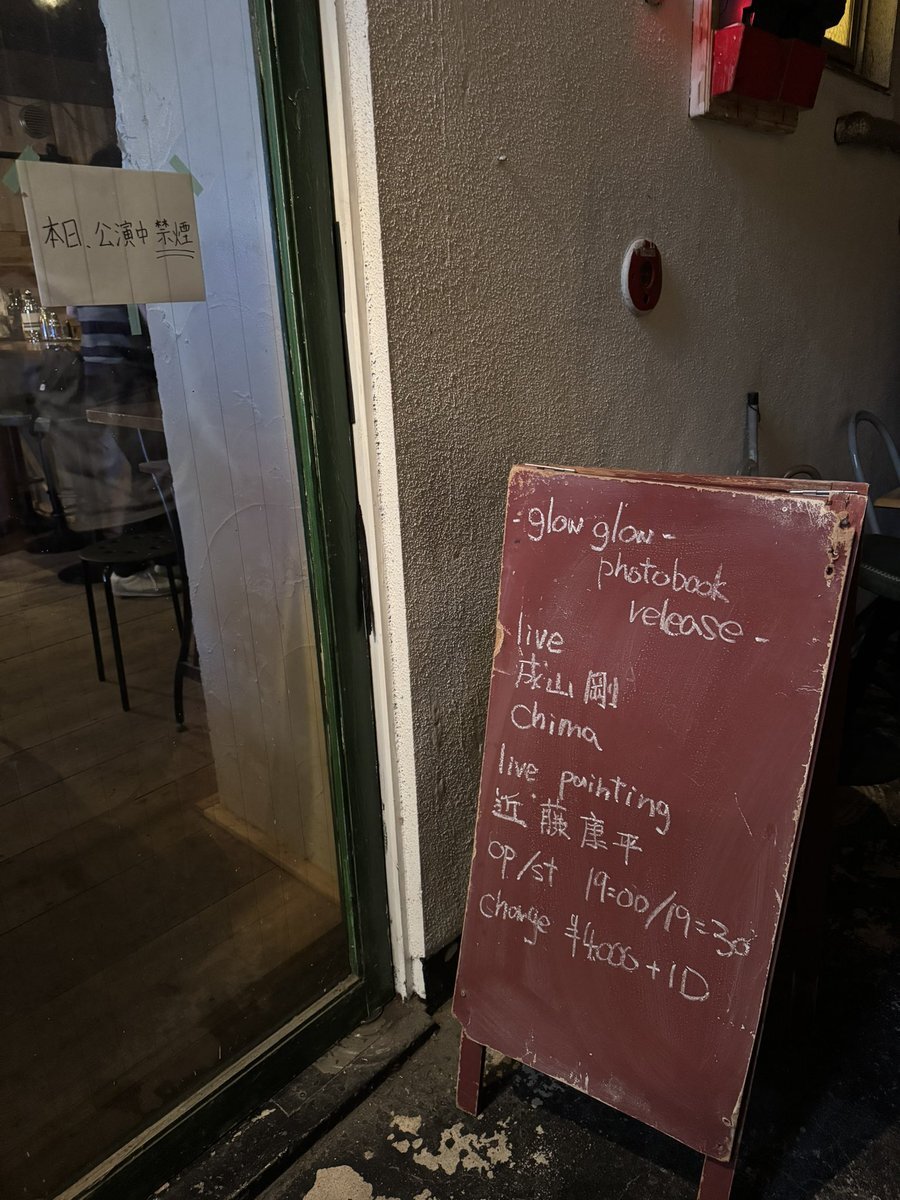 本日、公演中禁煙
-glow glow-
photobook
release-
live
成山 剛
Chima
live painting
近藤康平
op/st 19:00/19:30
charge ¥4.000+1D